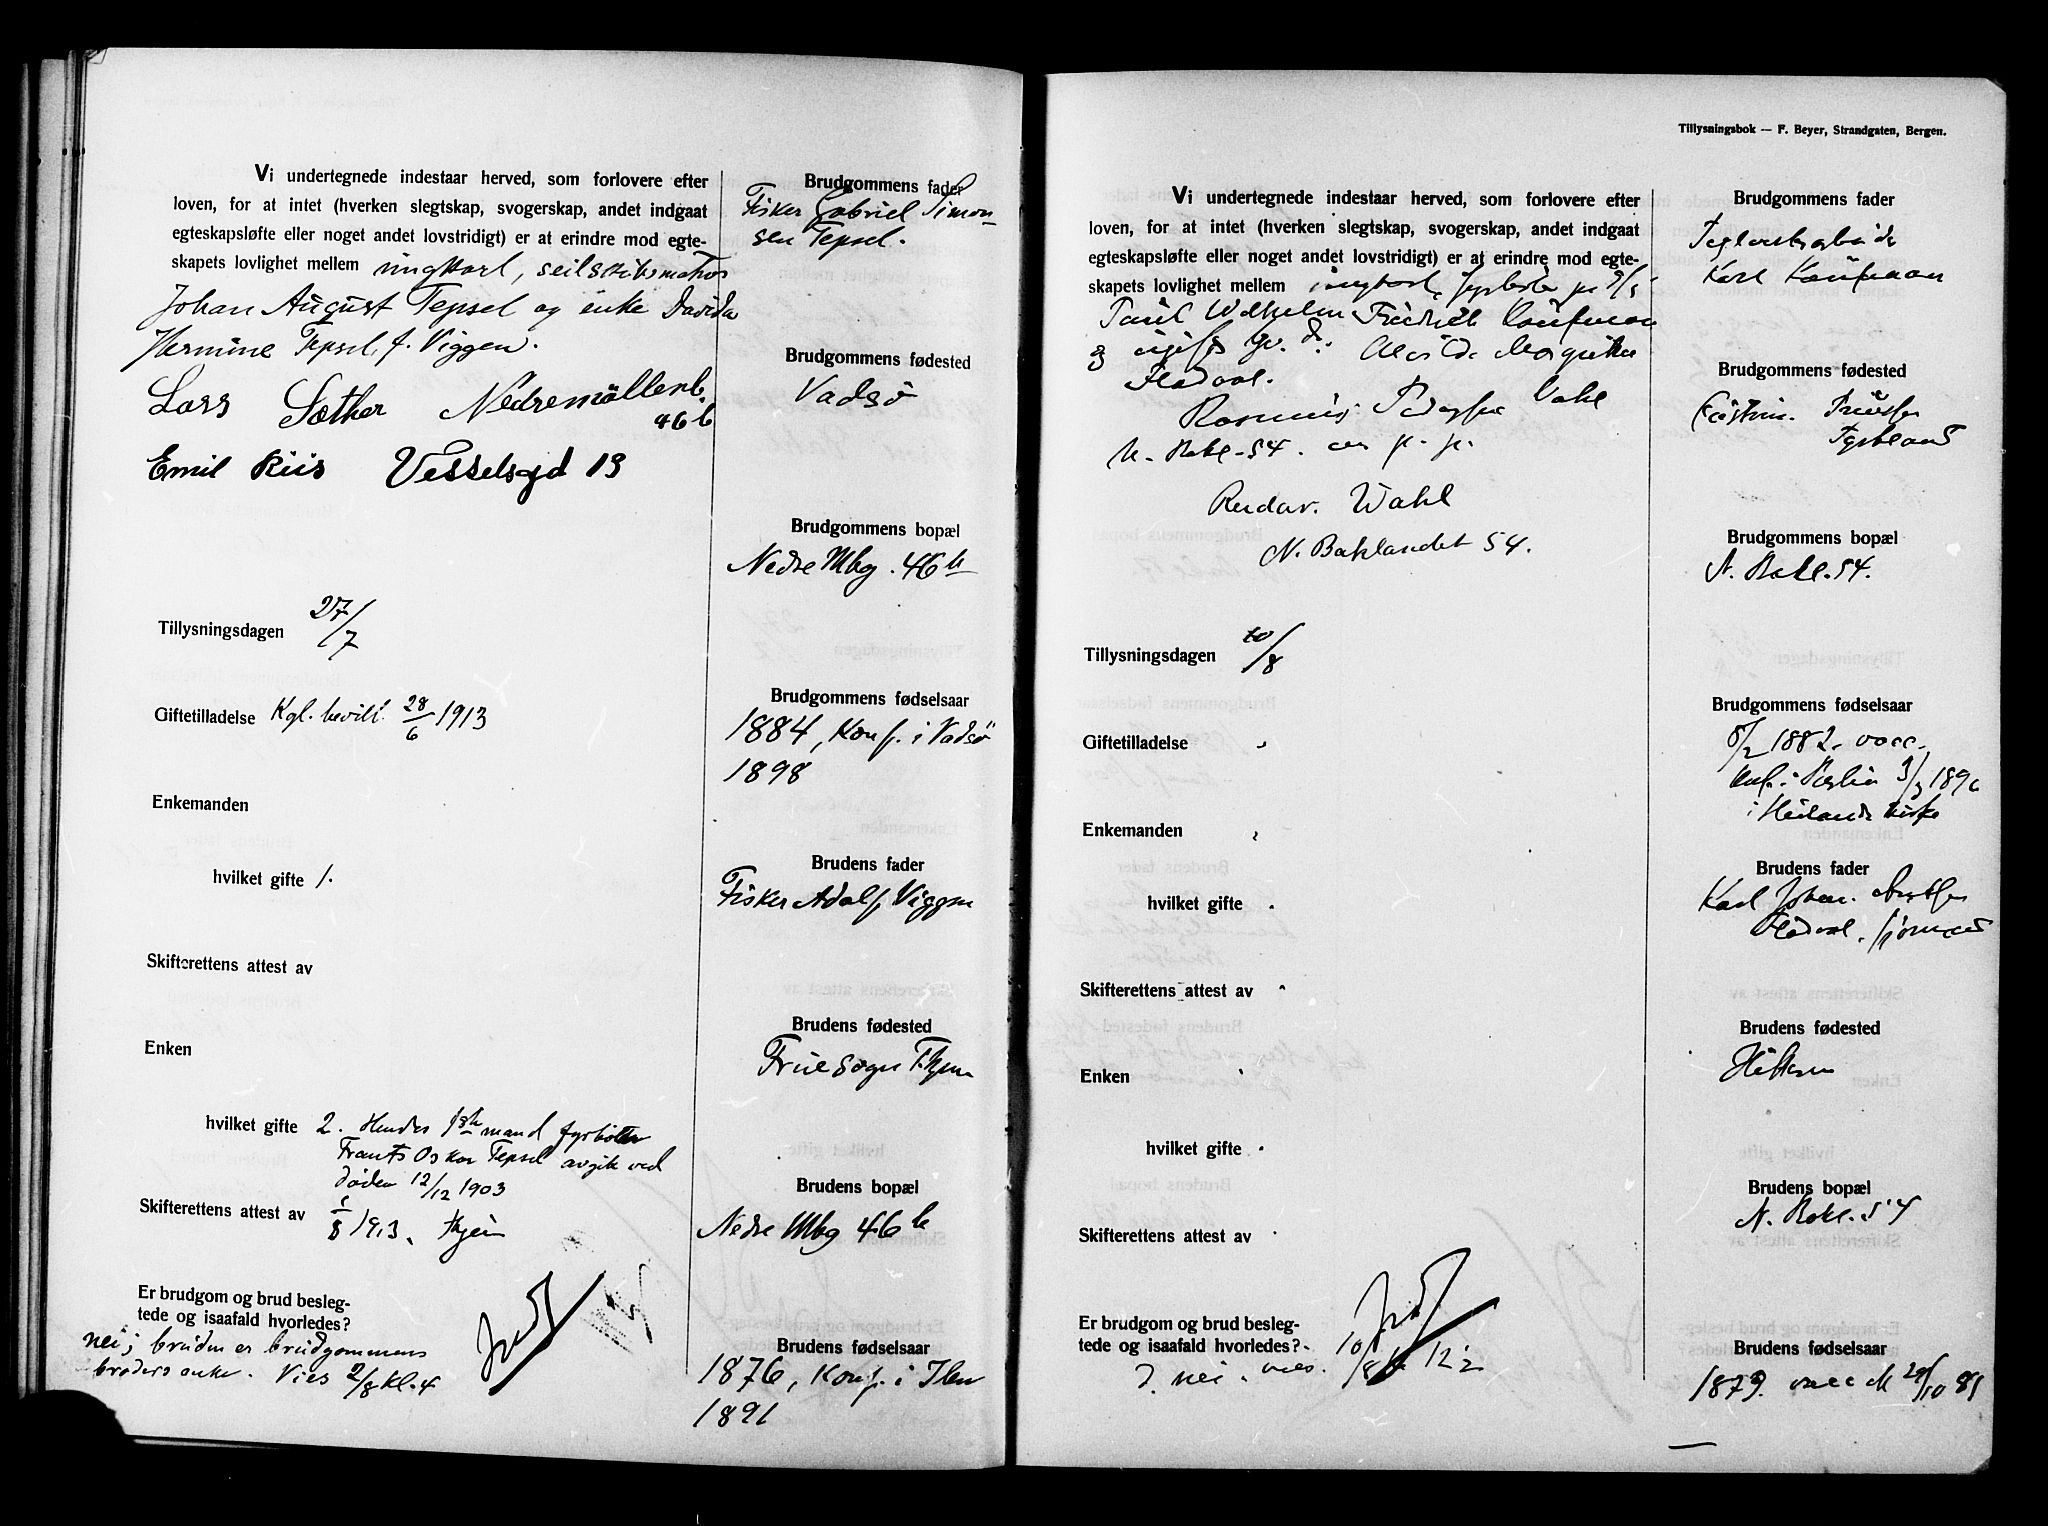 Vi undertegnede indestaar herved, som forlovere efter
loven, for at intet (hverken slegtskap, svogerskap, andet indgaat
egteskapsløfte eller noget andet lovstridigt) er at erindre mod egte-
skapets lovlighet mellem ungkarl, seilskibsmatros
Johan August Tepsel og enke Davida
Hermine Tepsel, f. Viggen.
Lars Sæther Nedremöllenb.
46 b
Emil Riis Vesselsgd 13
Tillysningsdagen 27/7
Giftetilladelse Kgl. bevill. 28/6 1913
Enkemanden
hvilket gifte 1.
Skifterettens attest av
Enken
hvilket gifte 2. Hendes 1ste mand fyrbøter
Frants Oskar Tepsel avgik ved
døden 12/12 1903
Skifterettens attest av 1/8 1913. Thjem
Er brudgom og brud besleg-
tede og isaafald hvorledes?
nei; bruden er brudgommens
broders enke. Vies 2/8 kl. 4
Brudgommens fader
Fisker Gabriel Simon-
sen Tepsel.
Brudgommens fødested
Vadsö
Brudgommens bopæl
Nedre Mbg. 46 b
Brudgommens fødselsaar
1884, Konf. i Vadsö
1898
Brudens fader
Fisker Adolf Viggen
Brudens fødested
Frue sogn T.hjem
Brudens bopæl
Nedre Mbg 46 b
Brudens fødselsaar
1876, Konf. i Ilen
1891
Tillysningsbok — F. Beyer, Strandgaten, Bergen.
Vi undertegnede indestaar herved, som forlovere efter
loven, for at intet (hverken slegtskap, svogerskap, andet indgaat
egteskapsløfte eller noget andet lovstridigt) er at erindre mod egte-
skapets lovlighet mellem ungkarl, fyrbøter
Paul Wilhelm Friedrich Kaufman
og ugift Alvilde Margrethe
Fladval.
Rasmus Wahl
N. Bakl. 54.
Reidar. Wahl
N. Baklandet 54.
Tillysningsdagen 10/8
Giftetilladelse "
Enkemanden "
hvilket gifte "
Skifterettens attest av "
Enken "
hvilket gifte "
Skifterettens attest av "
Er brudgom og brud besleg-
tede og isaafald hvorledes?
nei. vies. 10/8 kl 12½
Brudgommens fader
Karl Kaufman
Brudgommens fødested
Tyskland
Brudgommens bopæl
N. Bakl. 54.
Brudgommens fødselsaar
8/2 1882. vacc.
konf. i Berlin 3/3 1896
i Heilands kirke
Brudens fader
Karl Johan
Fladval, sjømand
Brudens fødested
Hitteren
Brudens bopæl
N. Bakl. 54
Brudens fødselsaar
1879. vacc 29/10 81